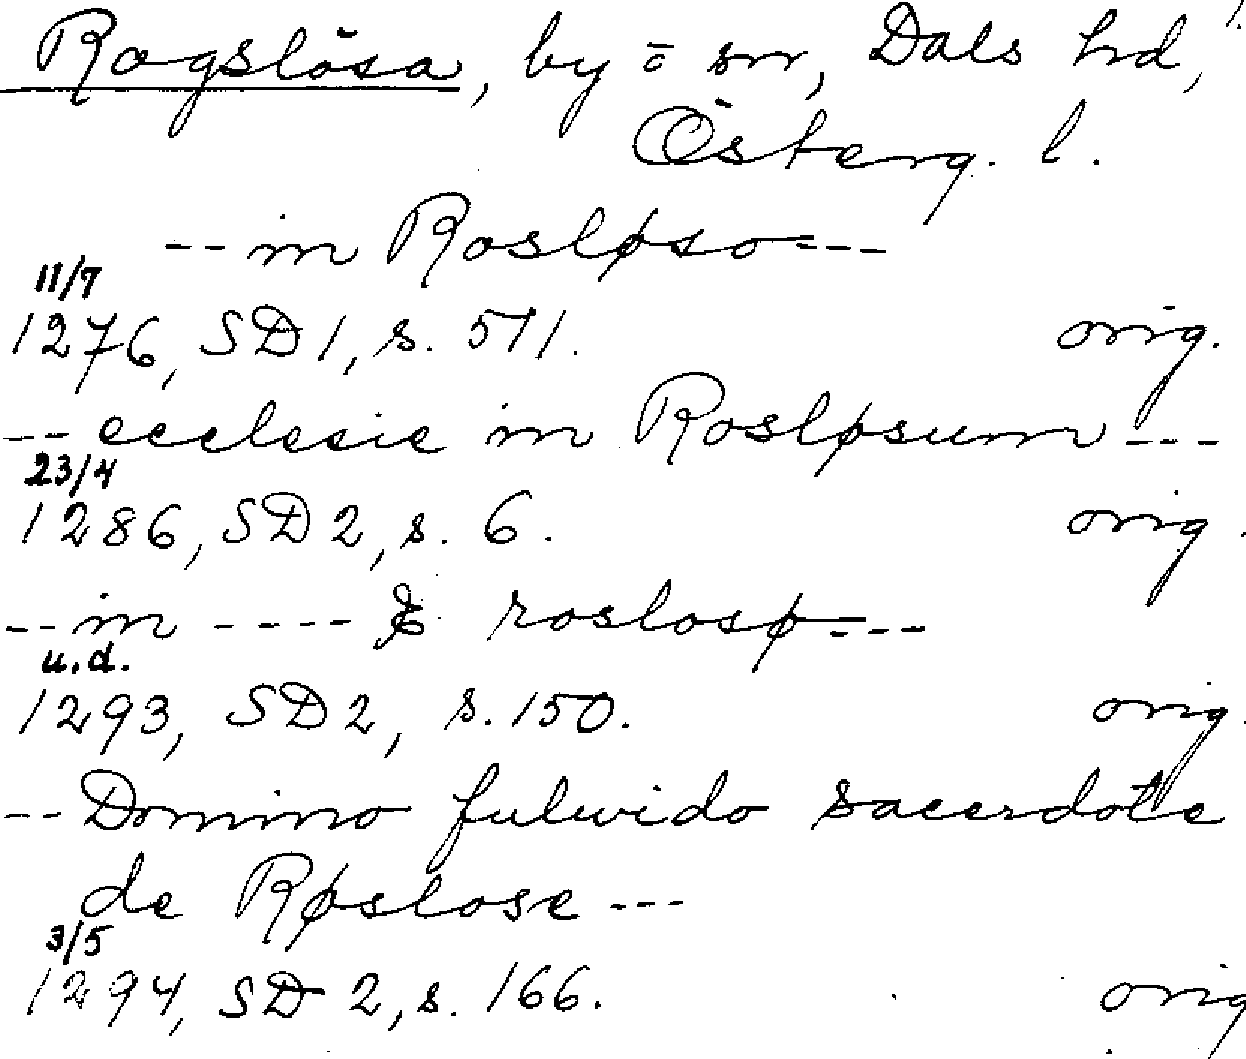 Rogslösa, by = sn, Dals hd,
Österg. l.
-- in Rosløso ---
11/7
1276, SD 1, s. 511. orig.
-- ecclesie in Rosløsum ---
23/4
1286, SD 2, s. 6. orig.
-- in ---- & roslosø ---
u.d.
1293, SD 2, s. 150. orig.
-- Domino fulwido sacerdote
de Røslose ---
3/5
1294, SD 2, s. 166. orig